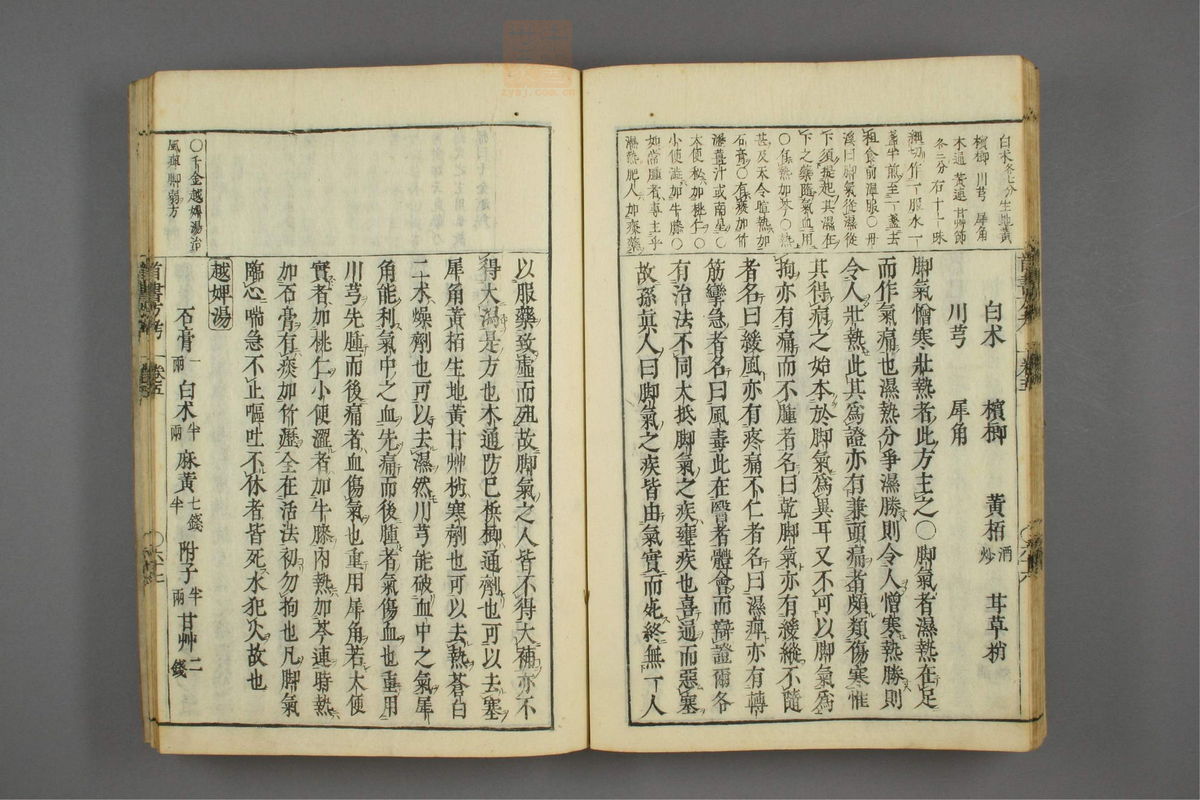 白朮 檳榔 黃栢酒炒 甘草梢
川芎 犀角
脚氣憎寒壯熱者此方主之○脚氣者濕熱在足
而作氣痛也濕熱分爭濕勝則令人憎寒熱勝則
令人壯熱此其爲證亦有兼頭痛者頗類傷寒惟
其得病之始本於脚氣爲異耳又不可以脚氣爲
拘亦有痛而不腫者名曰乾脚氣亦有緩縱不隨
者名曰緩風亦有疼痛不仁者名曰濕痺亦有轉
筋攣急者名曰風毒此在醫者體會而辯證爾各
有治法不同大抵脚氣之疾壅疾也喜通而惡塞
故孫真人曰脚氣之疾皆由氣實而死終無一人
白朮各七分生地黃
檳榔 川芎 犀角
木通 黃連 甘艸節
各三分右十一味
細切作一服水一
盞半煎至一盞去
粗食前溫服○丹
溪曰脚氣從濕從
下須提起其濕在
下之藥隨氣血用
○住熱加芩○熱
甚及天令暄熱加
石膏○有痰加竹
瀝薑汁或南星○
大便秘加桃仁○
小便澁加牛膝○
如常腫者專主乎
濕熱肥人加痰藥
以服藥致虛而殂故脚氣之人皆不得大補亦不
得大瀉是方也木通防已檳榔通劑也可以去塞
犀角黃栢生地黃甘艸梢寒劑也可以去熱蒼白
二朮燥劑也可以去濕然川芎能破血中之氣犀
角能利氣中之血先痛而後腫者氣傷血也重用
川芎先腫而後痛者血傷氣也重用犀角若大便
實者加桃仁小便澀者加牛膝內熱加芩連時熱
加石膏有痰加竹瀝全在活法初勿拘也凡脚氣
臨心喘急不止嘔吐不休者皆死水犯火故也
越婢湯
石膏一兩 白朮半兩 麻黃七錢半 附子半兩 甘艸二錢
○千金越婢湯治
風痺脚弱方